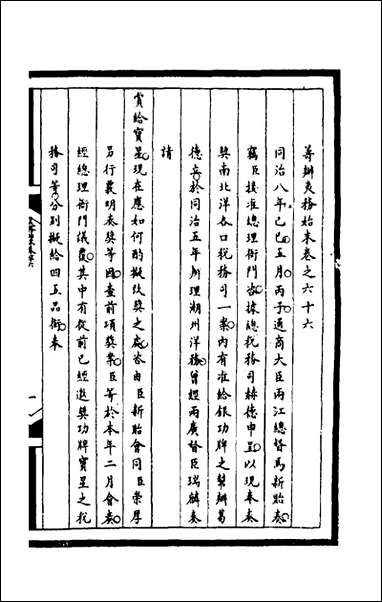 籌辦夷務始末卷之六十六
同治八年己巳五月丙子通商大臣兩江總督馬新貽奏
竊臣接准總理衙門咨據總稅務司赫德申呈以現奉奏
獎南北洋各口稅務司一案內有准給銀功牌之幫辦葛
德立於同治五年辦理潮州洋務曾經兩廣督臣瑞麟奏
請
賞給寶星現在應如何酌擬給獎之處咨由臣新貽會同臣崇厚
另行裏明奏獎等因查前項獎案臣等於本年二月會奏
經總理衙門議覆其中有從前已經邀獎功牌寶星之稅
務司等分別擬給四五品銜奉